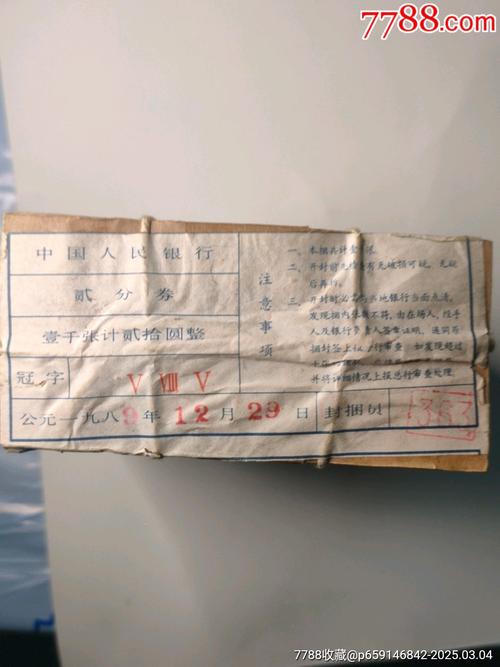 7788.com
中国人民银行
贰分券
壹千张计贰拾圆整
冠字 V VIII V
公元一九八9年12月29日 封捆员 353
注意事项
一、本捆共计壹 张。
二、开封前先检查有无破损可疑，无疑后再拆。
三、开封时必须与当地银行当面点清，
发现捆内张数不符，由在场人、经手
人及银行负责人签章证明，连同原
捆封签上报 行审查 如发现超过
十 张
并将详细情况上报总行审查处理。
7788收藏@p659146842-2025.03.04